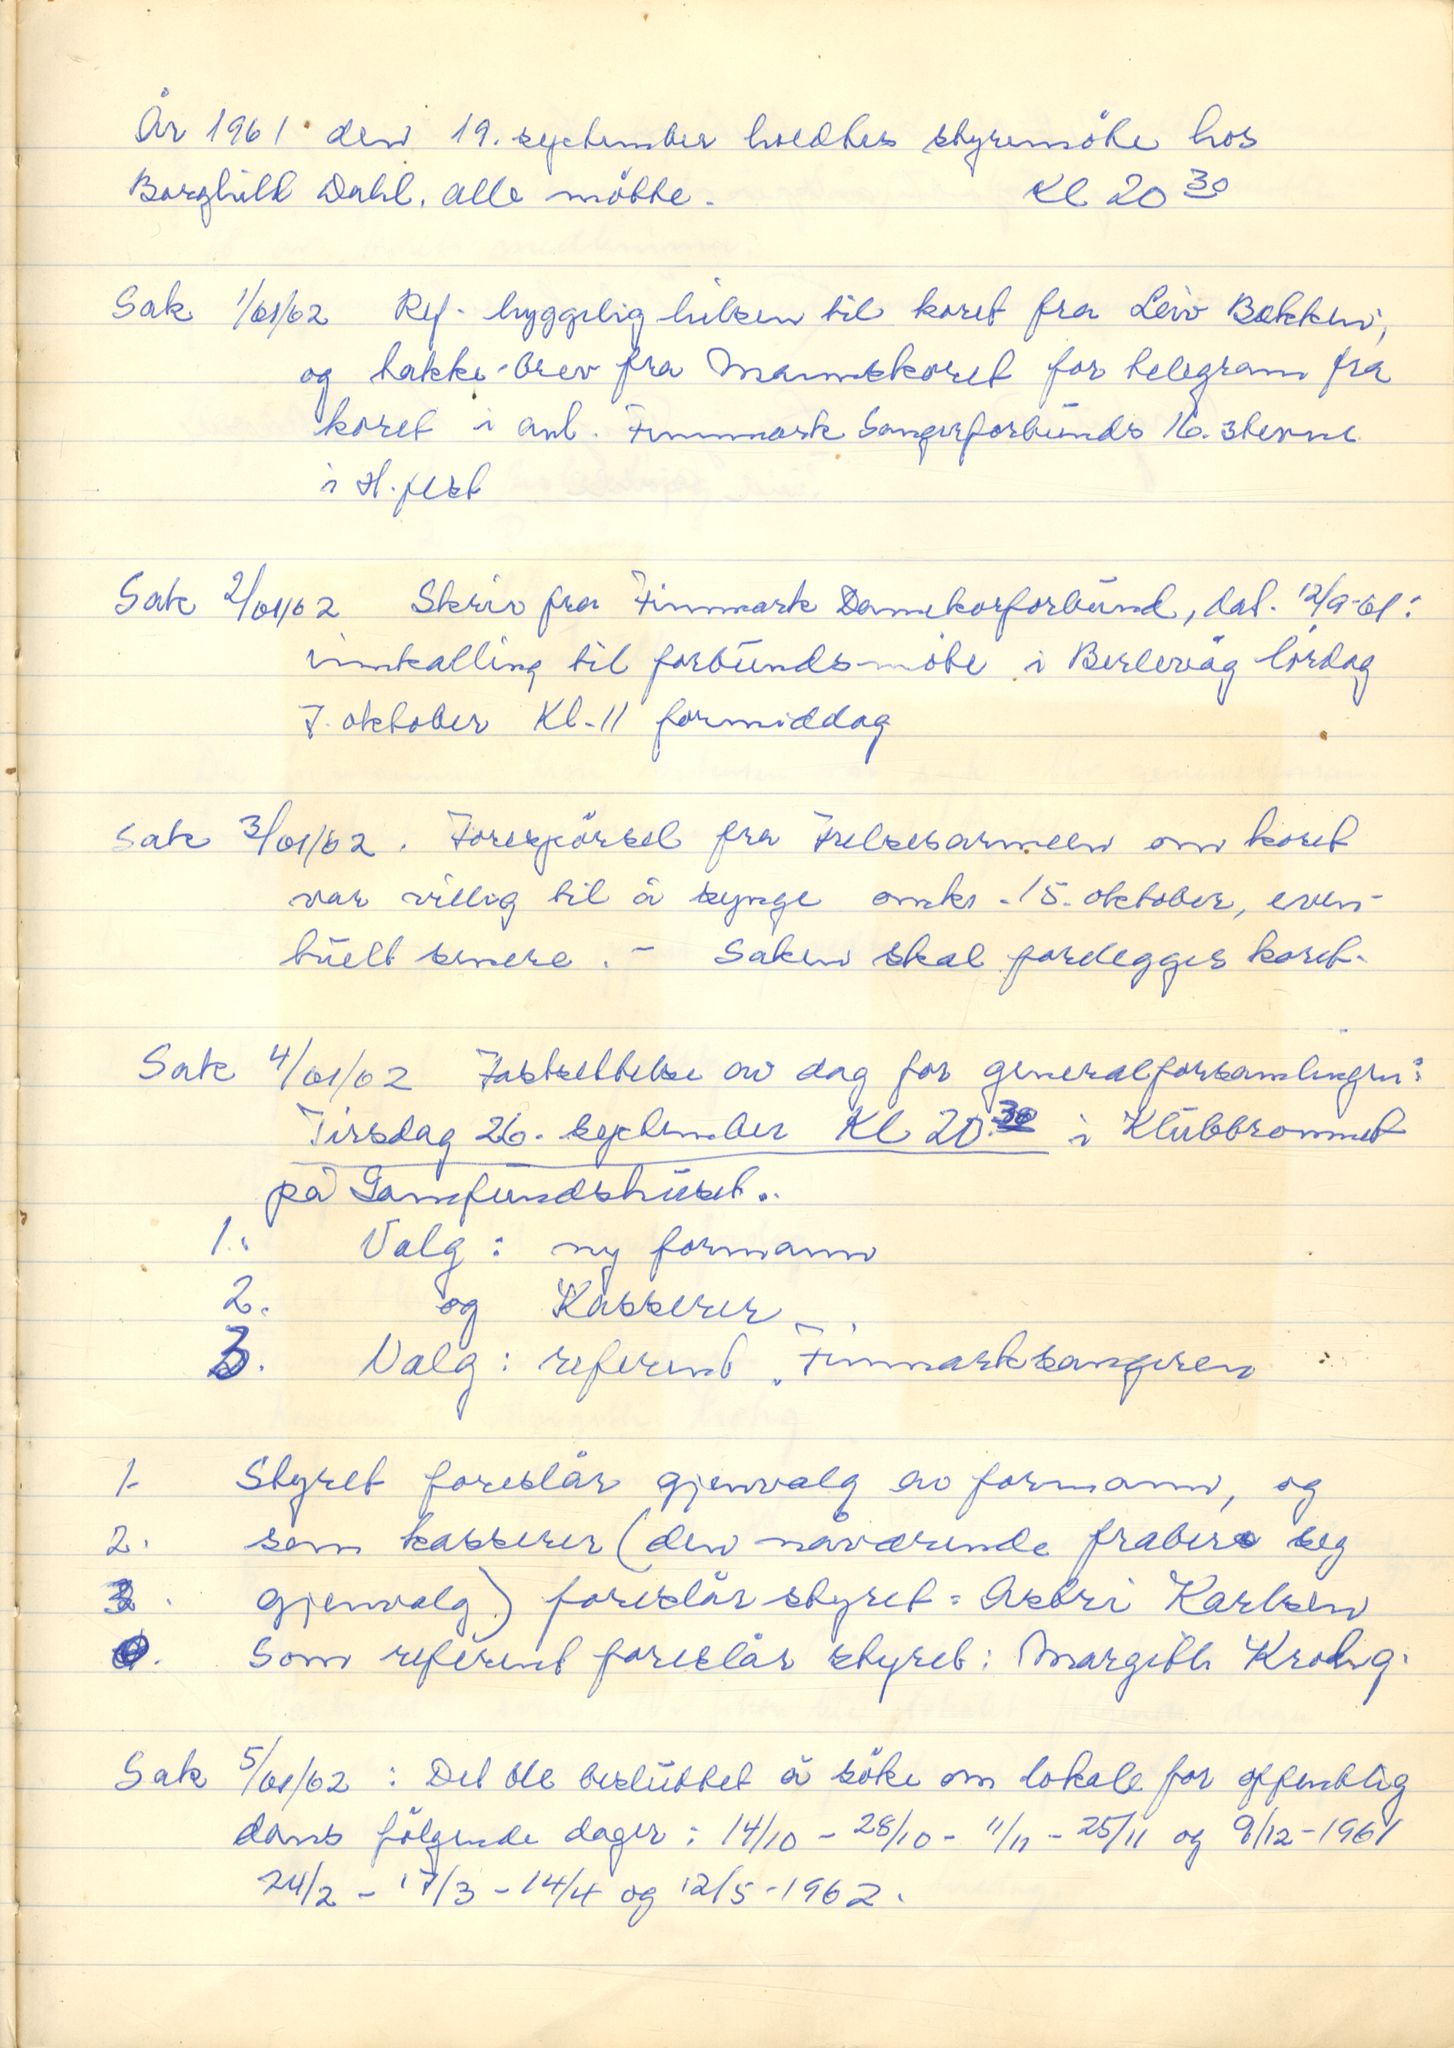 År 1961 den 19. september holdtes styremöte hos
Borghild Dahl. Alle mötte. Kl 20 30
Sak 1/61/62 Ref. hyggelig hilsen til koret fra Leiv Bakken,
og takke-brev fra Mannskoret for telegram fra
koret i anl. Finnmark Sangerforbunds 16. stevne
i H.fest
Sak 2/61/62 Skriv fra Finnmark Damekorforbund, dat. 12/9-61:
innkalling til forbundsmöte i Berlevåg lördag
7. oktober Kl. 11 formiddag
Sak 3/61/62. Forespörsel fra Frelsesarmeen om koret
var villig til å synge omkr. 15. oktober, even-
tuelt senere. - Saken skal forelegges koret.
Sak 4/61/62 Fastsettelse av dag for generalforsamlingen:
Tirsdag 26. september Kl 20.30 i Klubbrommet
på Samfundshuset..
1. Valg: ny formann
2. og Kasserer
3. Valg: referent Finnmarksangeren
1. Styret foreslår gjenvalg av formann, og
2. som kasserer (den nåværende fraber seg
3. gjenvalg) foreslår styret: Astri Karlsen
. Som referent foreslår styret: Margith Krohg.
Sak 5/61/62: Det ble besluttet å söke om lokale for offentlig
dans fölgende dager: 14/10 - 28/10 - 11/11 - 25/11 og 9/12-1961
24/2 - 17/3 - 14/4 og 12/5-1962.